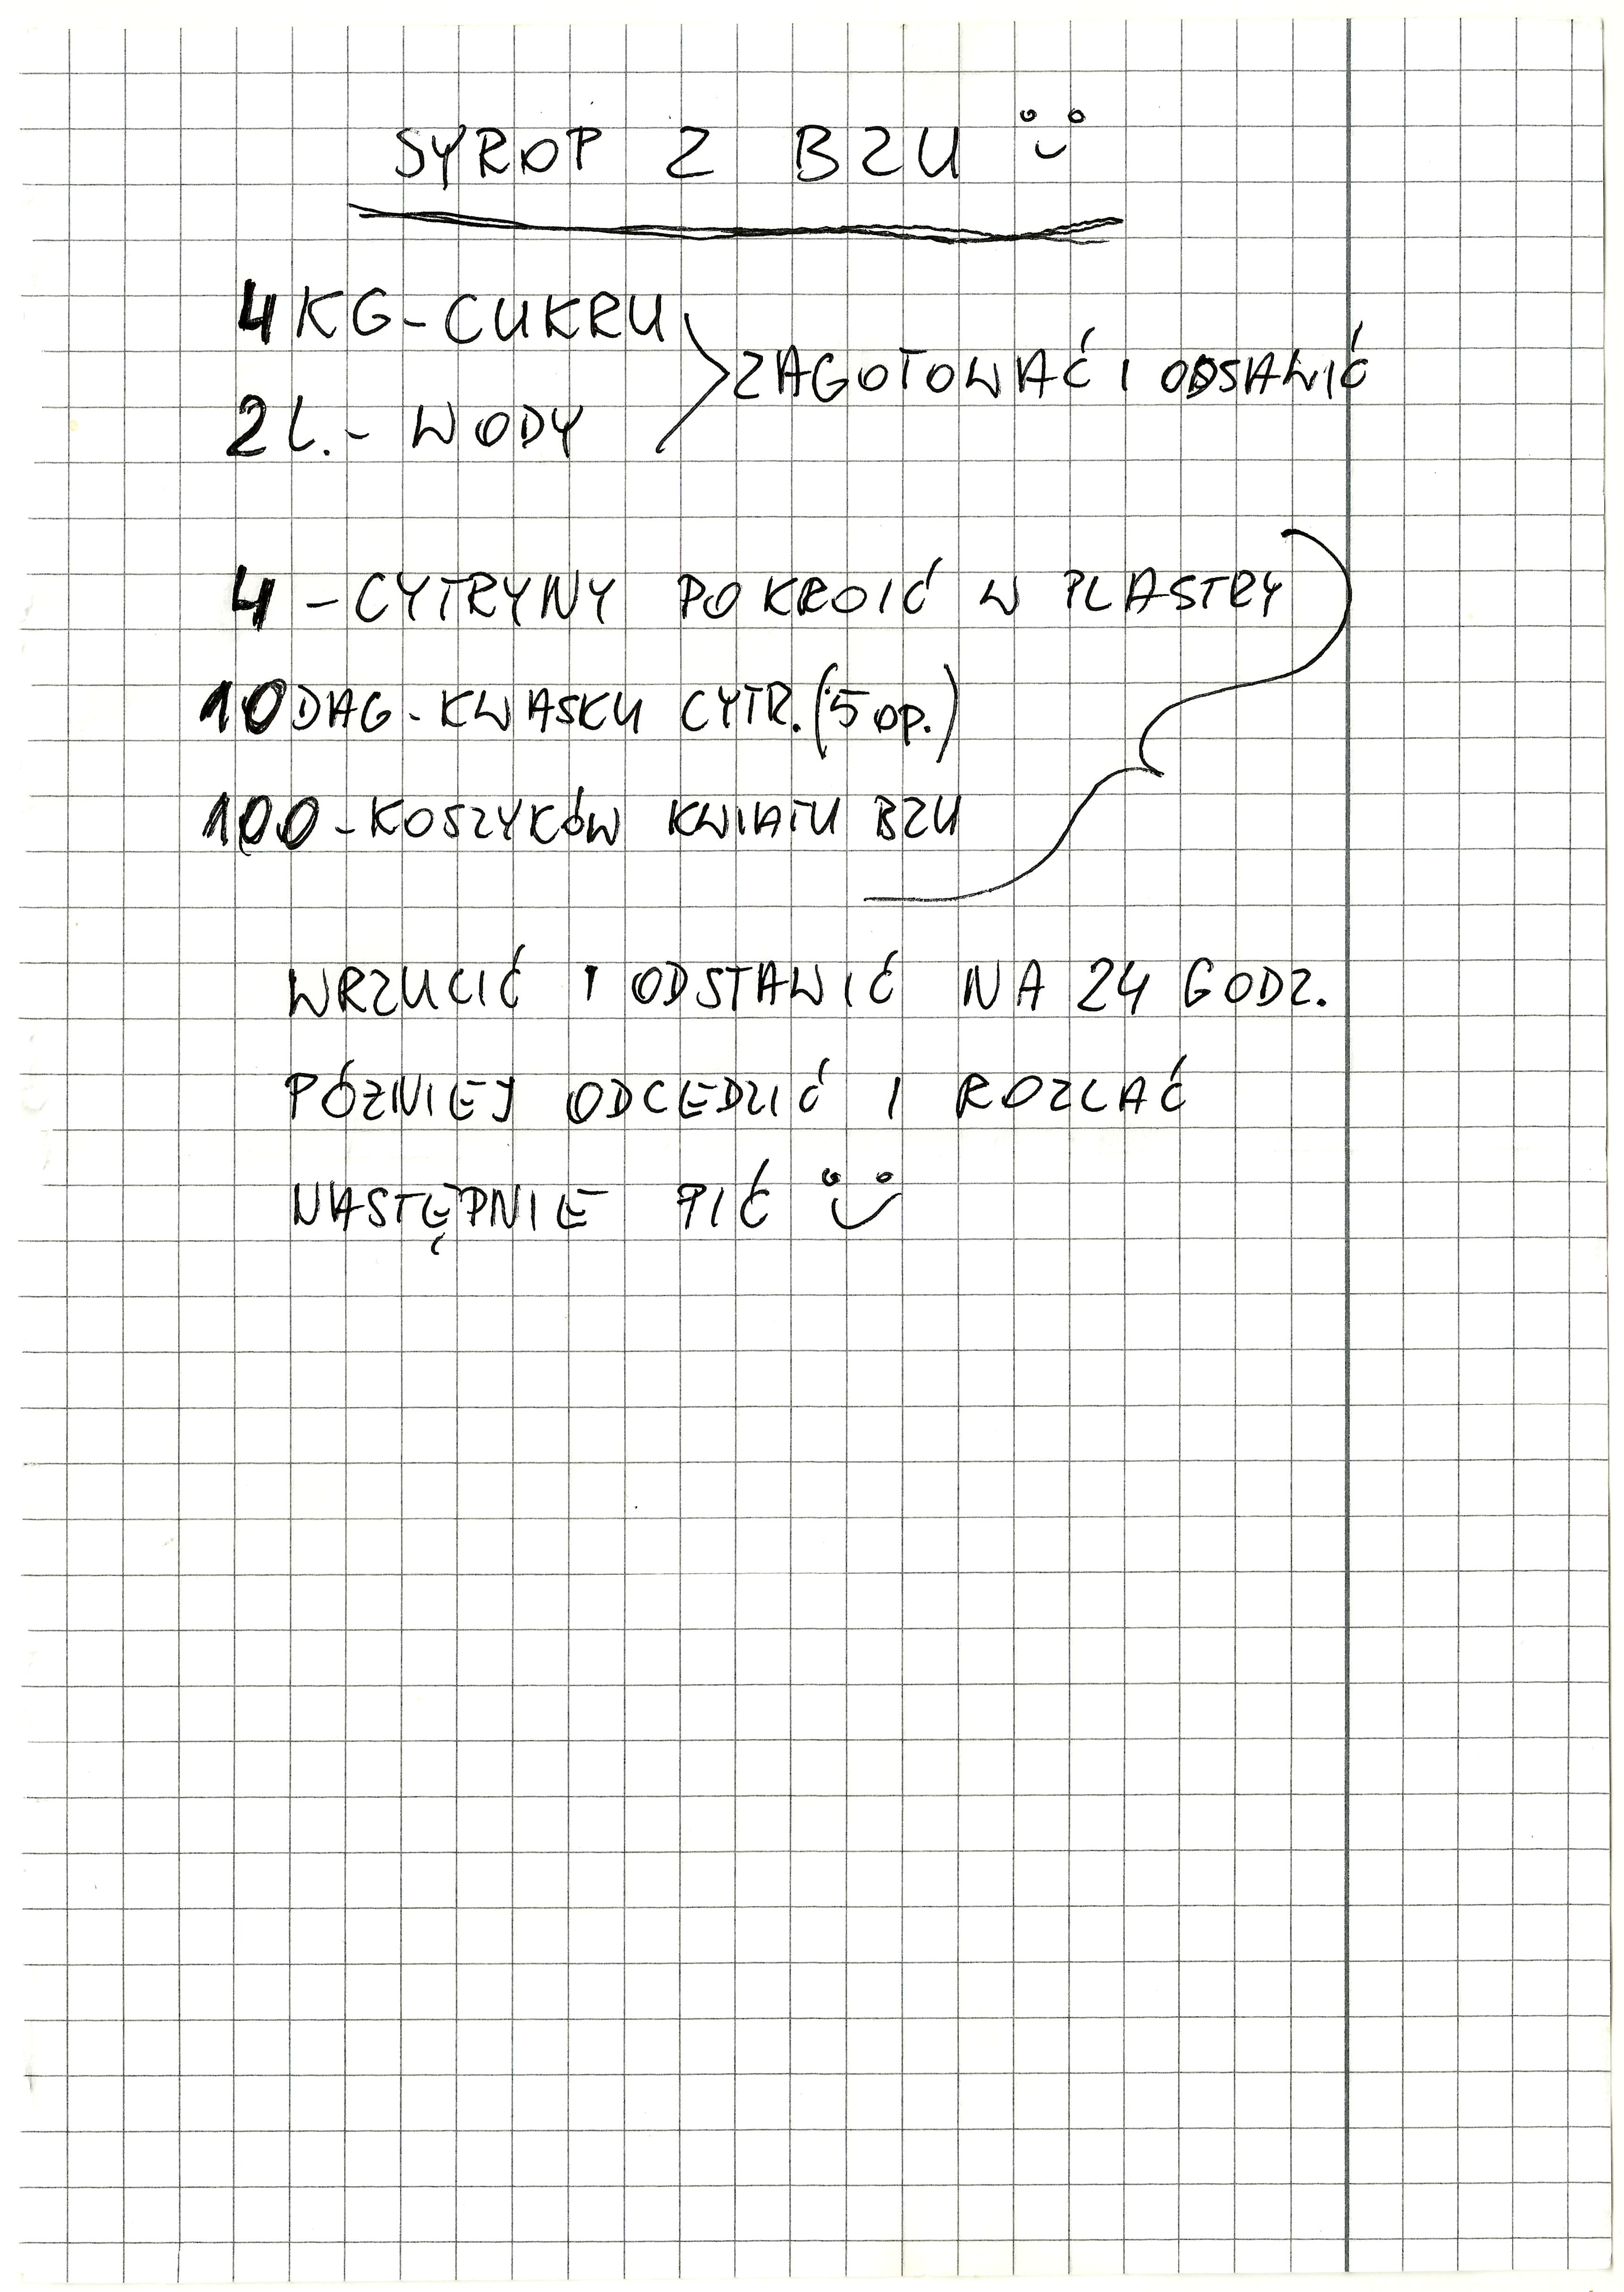 SYROP Z BZU
4 KG - CUKRU
ZAGOTOWAĆ I ODSAWIĆ
2 L. - WODY
4 - CYTRYNY POKROIĆ W PLASTRY
10 DAG - KWASKU CYTR. (5 OP.)
100 - KOSZYKÓW KWIATU BZU
WRZUCIĆ I ODSTAWIĆ NA 24 GODZ.
PÓZNIEJ ODCEDZIĆ I ROZLAĆ
NASTĘPNIE PIĆ